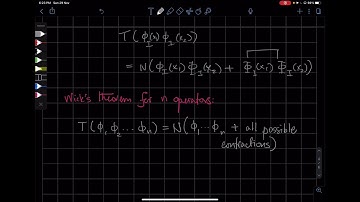 6:23 PM Sun 29 Nov
T(ϕ_I(x₁)ϕ_I(x₂))
= N(ϕ_I(x₁)ϕ_I(x₂) + ϕ_I(x₁)ϕ_I(x₂))
Wick's theorem for n operators:
T(ϕ₁ϕ₂⋯ϕₙ) = N(ϕ₁⋯ϕₙ + all possible
contractions)